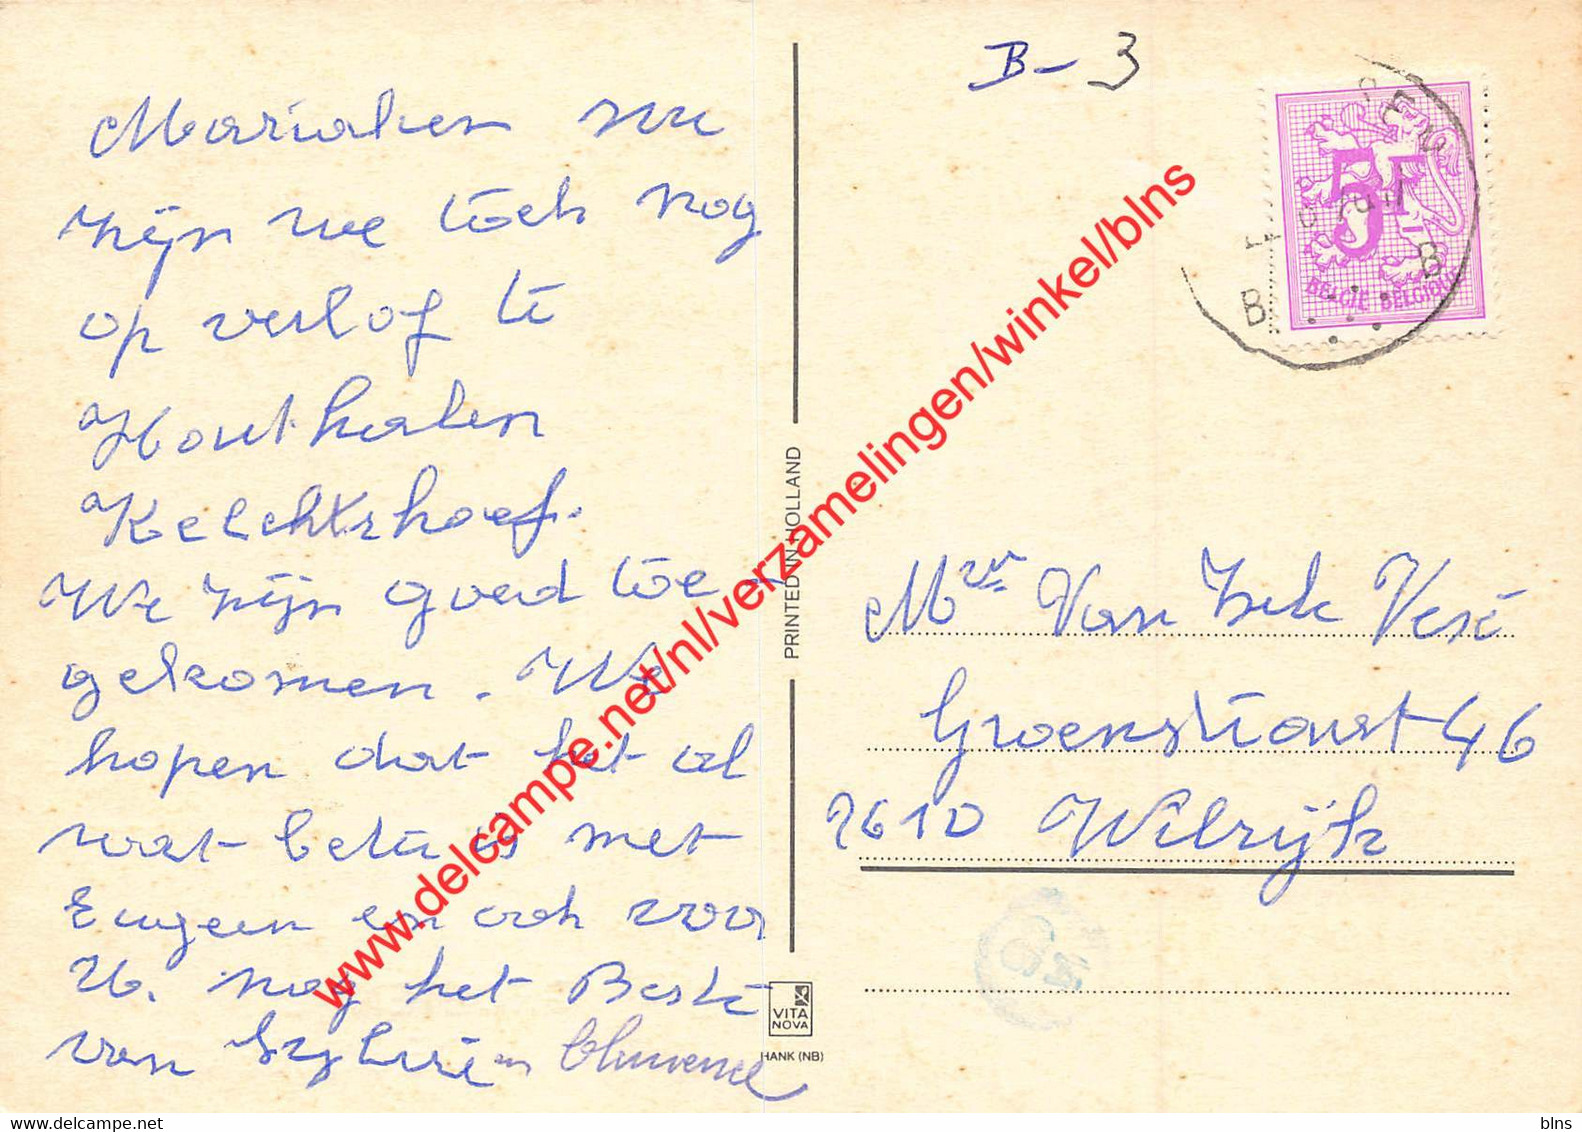 Mariaken nu
zijn we toch nog
op verlof te
Houthalen
Kelchterhoef.
We zijn goed toe-
gekomen. We
hopen dat het al
wat beter is met
Eugeen en ook voor
U. nog het Beste
van Sylvie en
B-3
5F
BELGIE BELGIQUE
B
B
PRINTED IN HOLLAND
VITA
NOVA
HANK (NB)
Mvr Van
Groenstraat 46
2610 Wilrijk
www.delcampe.net/nl/verzamelingen/winkel/blns
blns